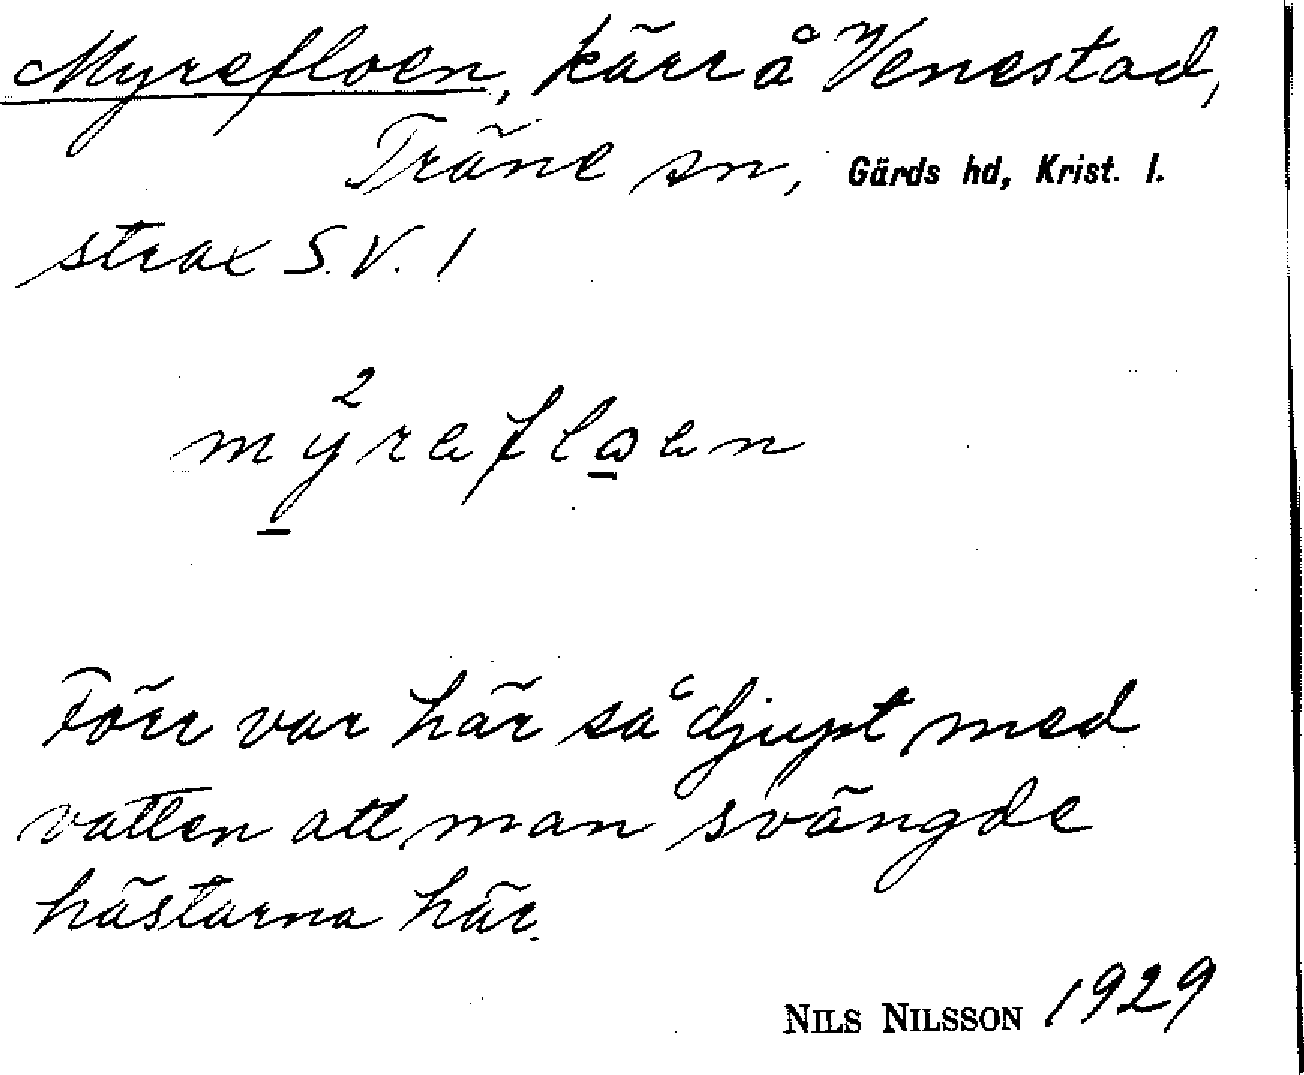 Myrefloen, kärr å Venestad,
Träne sn, Gärds hd, Krist. l.
strax S.V. 1
2
mÿrefloen
Förr var här så djupt med
vatten att man svängde
hästarna här.
NILS NILSSON 1929